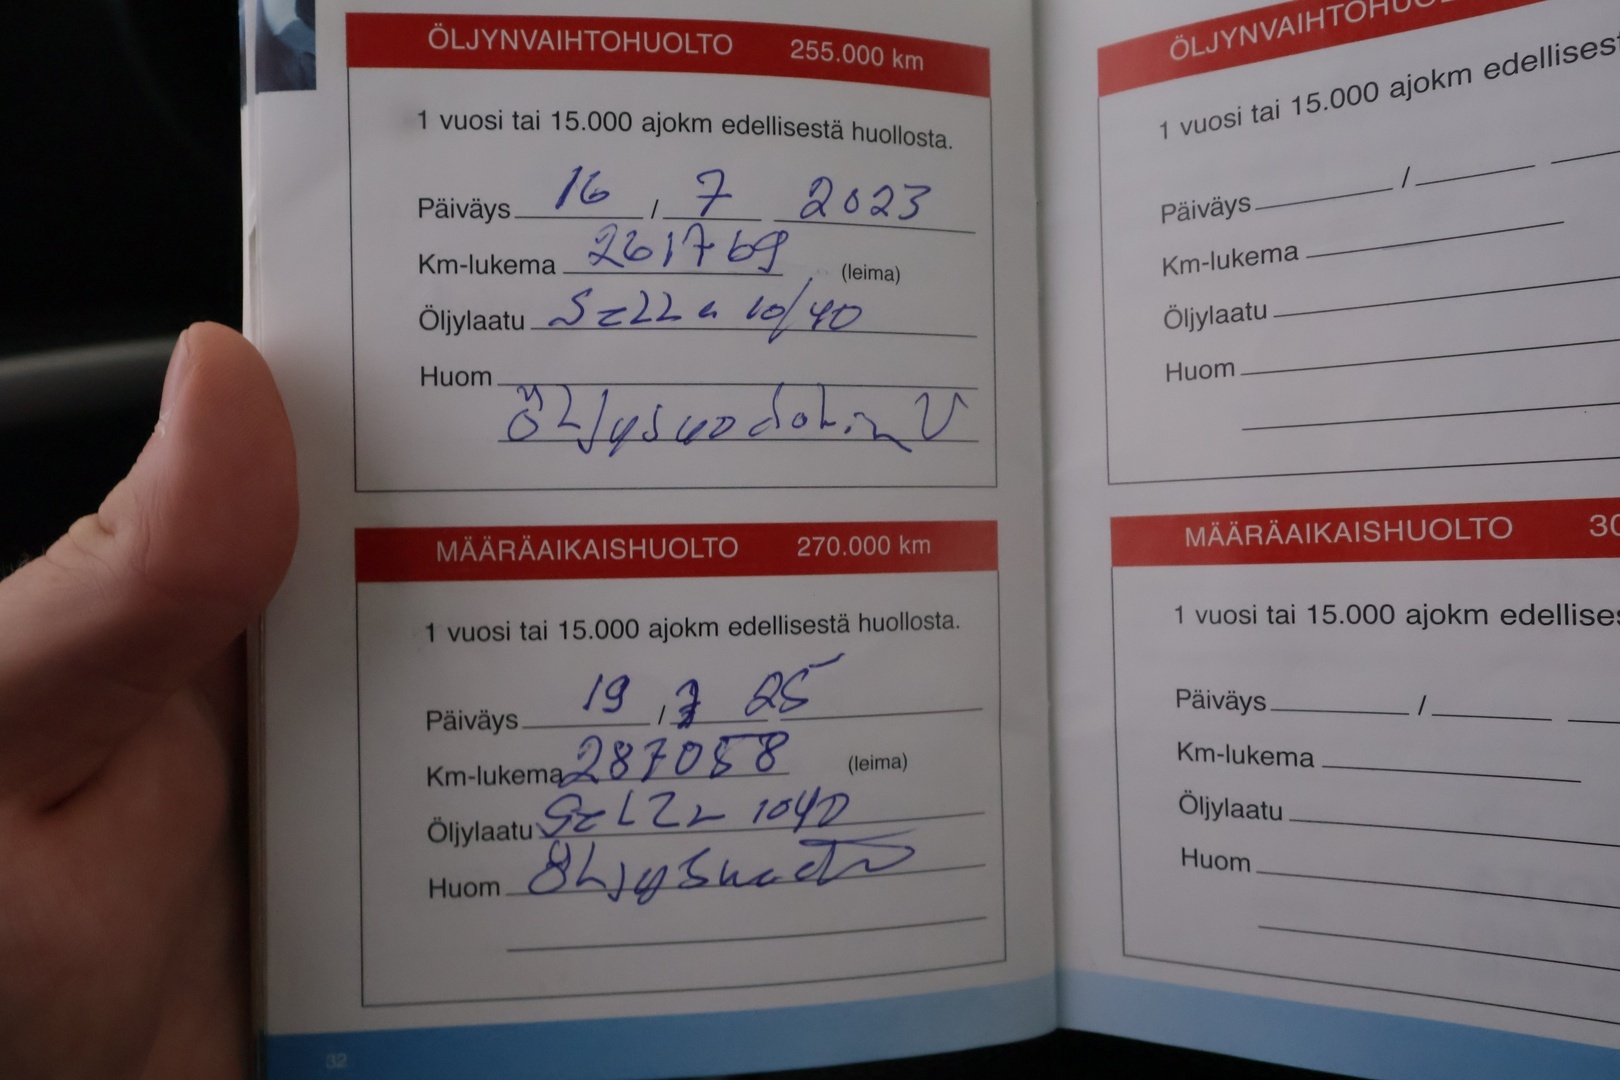 ÖLJYNVAIHTOHUOLTO 255.000 km
1 vuosi tai 15.000 ajokm edellisestä huollosta.
Päiväys 16 / 7 2023
Km-lukema 261769 (leima)
Öljylaatu 10/40
Huom
Öljysuodatin V
MÄÄRÄAIKAISHUOLTO 270.000 km
1 vuosi tai 15.000 ajokm edellisestä huollosta.
Päiväys 19 / 7 25
Km-lukema 287058 (leima)
Öljylaatu 1040
Huom
32
ÖLJYNVAIHTOHUOL
1 vuosi tai 15.000 ajokm edellises
Päiväys /
Km-lukema
Öljylaatu
Huom
MÄÄRÄAIKAISHUOLTO 30
1 vuosi tai 15.000 ajokm edellises
Päiväys /
Km-lukema
Öljylaatu
Huom